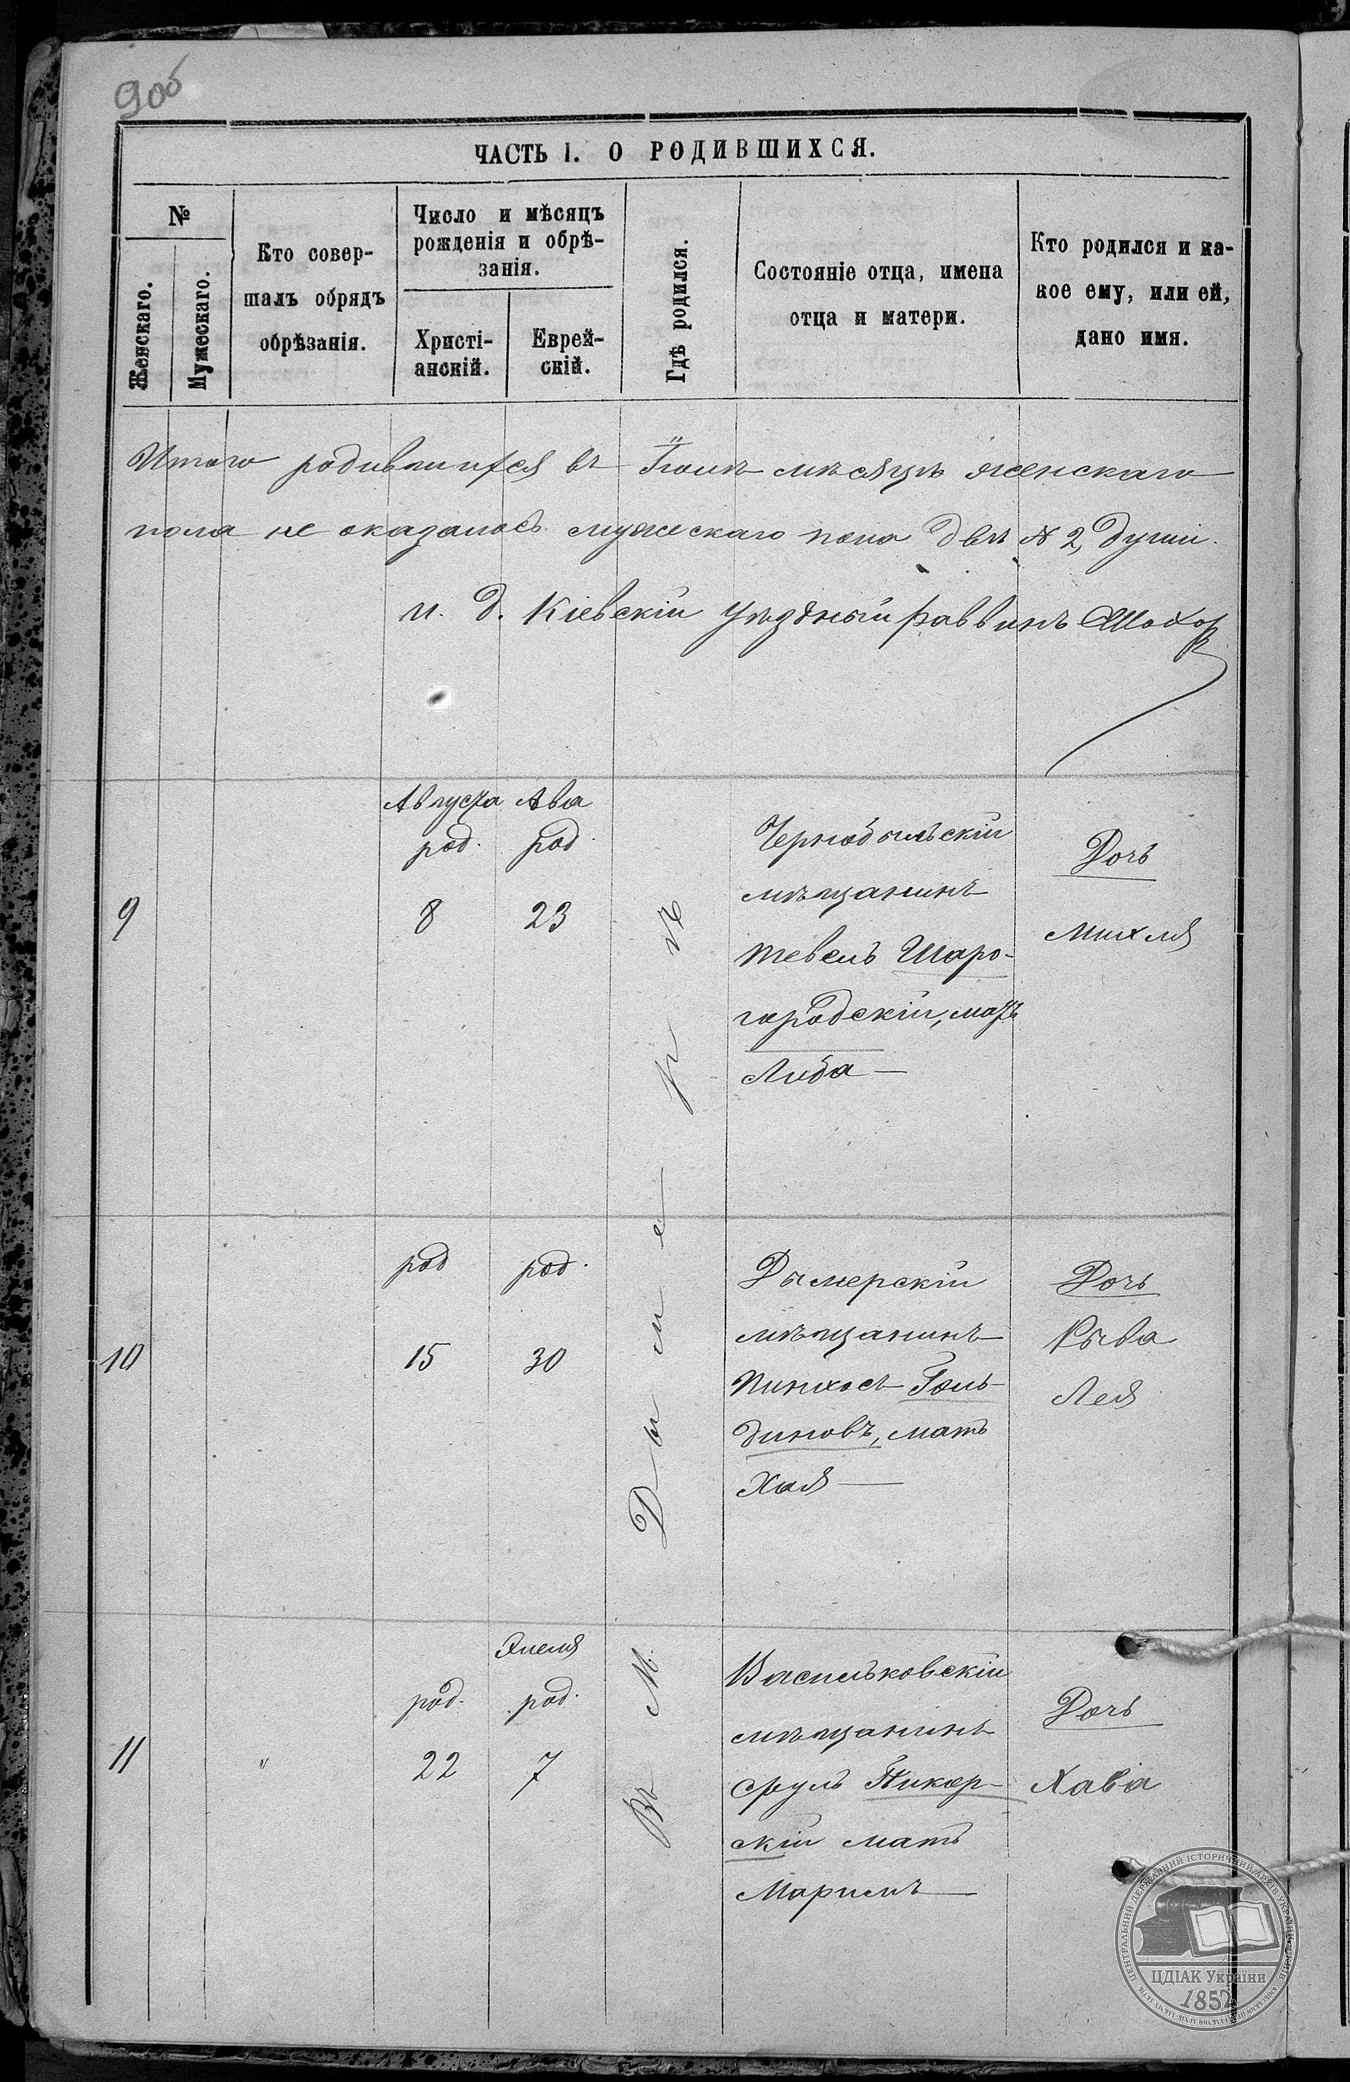 9об
ЧАСТЬ I. О РОДИВШИХСЯ.
№
Женскаго.
Мужескаго.
Кто совер-
шалъ обрядъ
обрѣзанія.
Число и мѣсяцъ
рожденія и обрѣ-
занія.
Христі-
анскій.
Еврей-
скій.
Гдѣ родился.
Состояніе отца, имена
отца и матери.
Кто родился и ка-
кое ему, или ей,
дано имя.
Итого родившихся въ Іюлѣ мѣсяцѣ женскаго
пола не оказалось мужескаго пола двѣ № 2, души.
и. д. Кіевскій уѣздный раввинъ
Въ М. Дымерѣ
Августа Ава
род. род.
9 8 23
Чернобыльскій
мѣщанинъ
Тевель Шаро-
городскій, мать
Либа —
Дочь
Михля
род род.
10 15 30
Дымерскій
мѣщанинъ
Пинхосъ Голь-
диновъ, мать
Хая —
Дочь
Рыва
Лея
Элеля
род. род.
11 " 22 7
Васильковскій
мѣщанинъ
Сруль
скій мать
Маримъ —
Дочь
Хавa
ЦДІАК України
1852